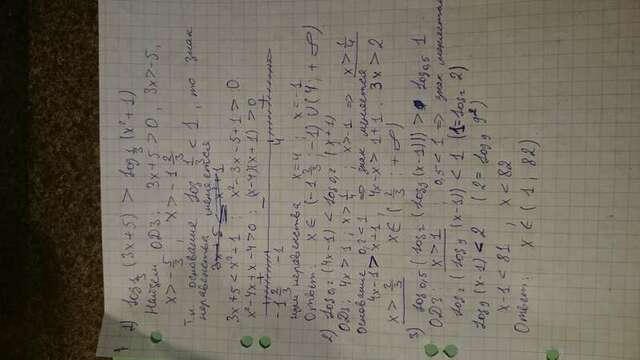 1) log 1/3 (3x+5) > log 1/3 (x²+1)
Найдем ОДЗ: 3x+5 > 0, 3x > -5,
x > -5/3; x > -1 2/3
Т.к. основание log 1/3 < 1, то знак
неравенства меняется
3x+5 < x²+1
3x+5 < x²+1 ; x²-3x-5+1 > 0
x²-4x+x-4>0 ; (x-4)(x+1) > 0
-1 2/3 -1 4
неравенства x=4 x=-1
Ответ: x ∈ (-1 2/3; -1) ∪ (4; +∞)
2) log 0,2 (4x-1) < log 0,2 (x+1)
ОДЗ: 4x > 1, x > 1/4 x > -1 => x > 1/4
Основание 0,2 < 1 => знак меняется
4x-1 > x+1 ; 4x-x > 1+1 ; 3x > 2
x > 2/3 x ∈ (2/3; +∞)
3) log 0,5 (log 2 (log 9 (x-1))) > log 0,5 1
ОДЗ: x > 1 ; 0,5 < 1 => знак меняется
log 2 (log 9 (x-1)) < 1 (1 = log 2 2)
log 9 (x-1) < 2 (2 = log 9 9²)
x-1 < 81 ; x < 82
Ответ: x ∈ (1; 82)